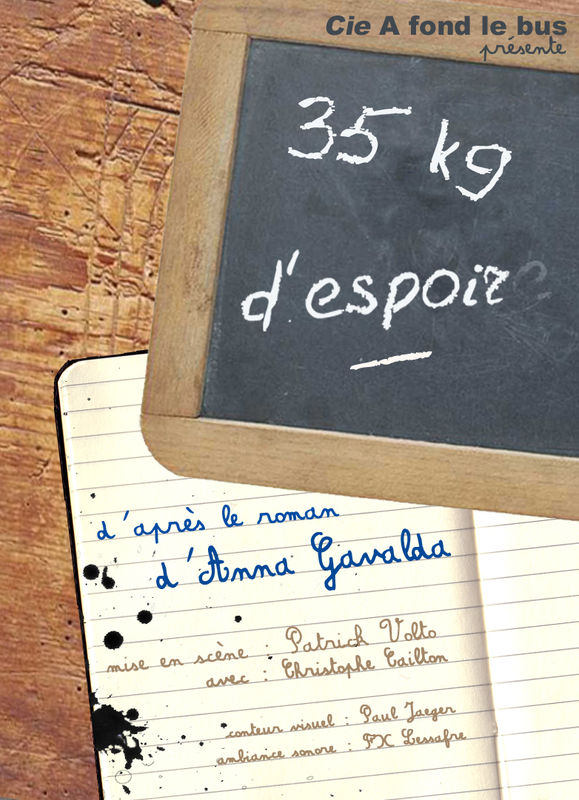 Cie A fond le bus
présente
35 kg
d'espoir
d'après le roman
d'Anna Gavalda
mise en scène : Patrick Volto
avec : Christophe Tailton
conteur visuel : Paul Jaeger
ambiance sonore : FX Lessafre